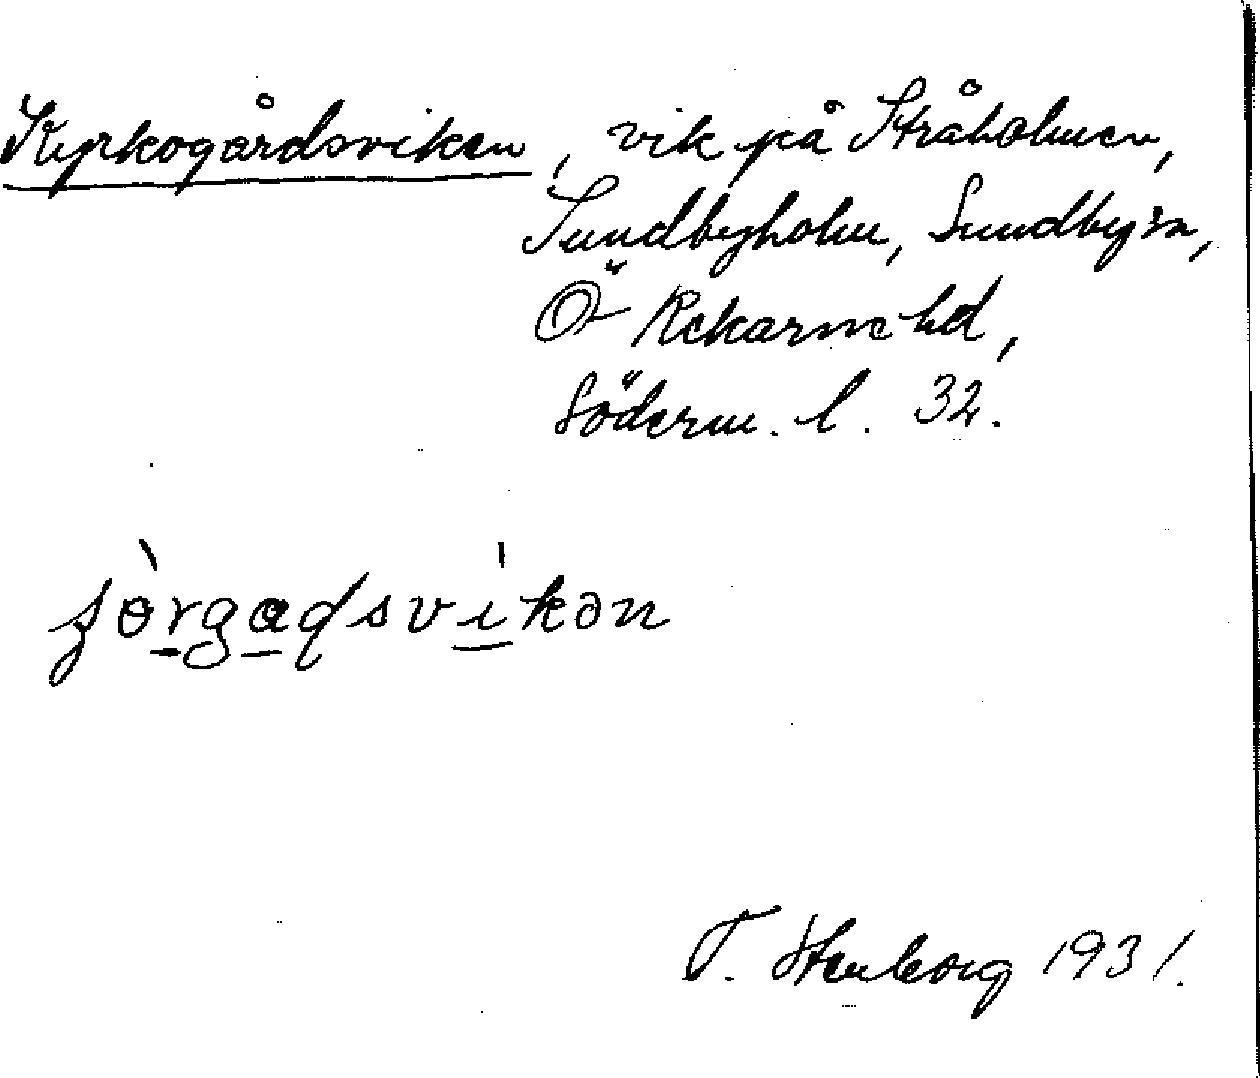 Kyrkogårdsviken, vik på Stråholmen,
Sundbyholm, Sundby sn,
Ö Rekarne hd,
Söderm. l. 32.
T. Stenborg 1931.